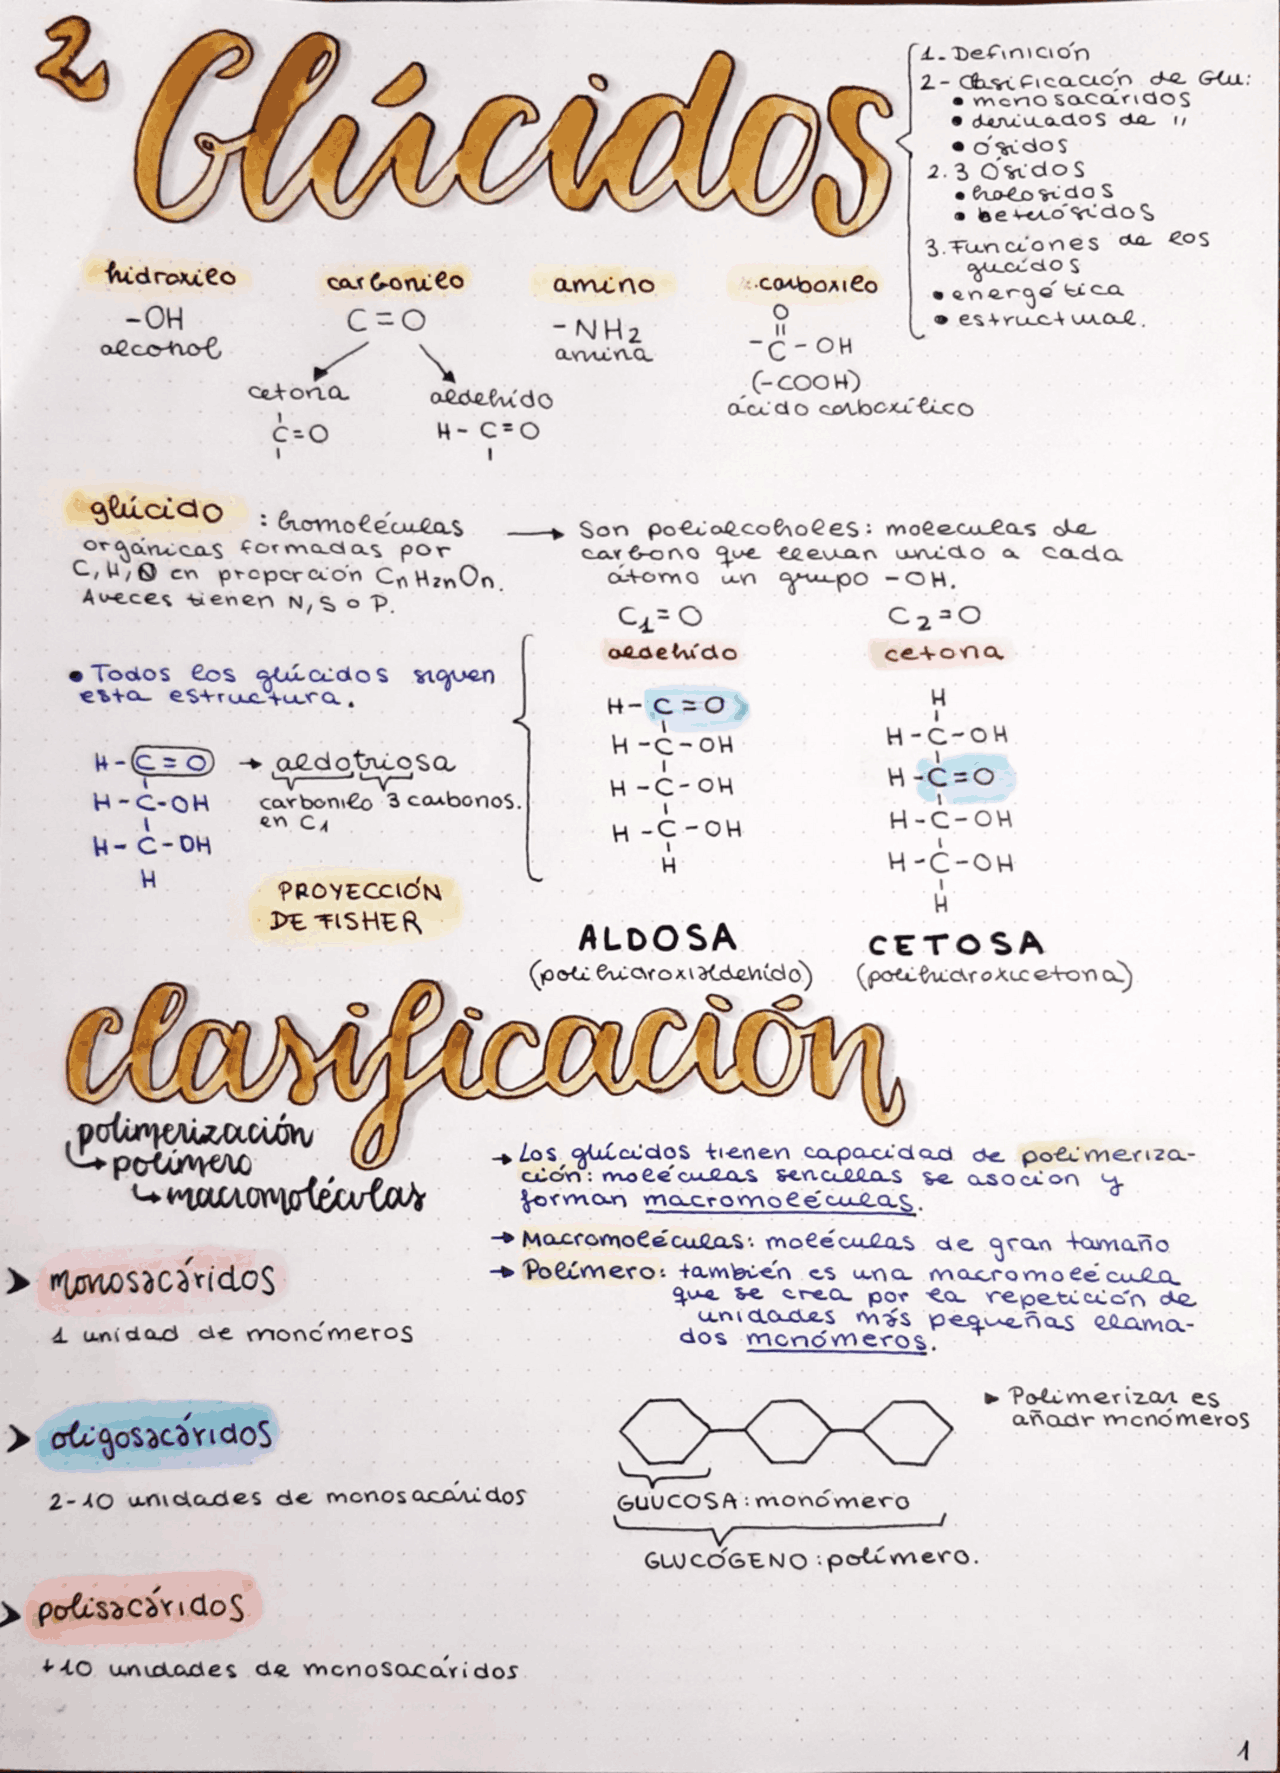 2 Glúcidos
1. Definición
2- Clasificación de Glu:
• monosacáridos
• derivados de "
• ósidos
2.3 Ósidos
• holosidos
• heterósidos
3. Funciones de los
glucidos
• energética
• estructural.
hidroxilo carbonilo amino carboxilo
-OH C=O -NH2 O
alcohol amina =
-C-OH
(-COOH)
ácido carboxílico
cetona aldehído
C=O H-C=O
glúcido : biomoléculas
orgánicas formadas por
C, H, O en proporción CnH2nOn.
Aveces tienen N, S o P.
→ Son polialcoholes: moleculas de
carbono que llevan unido a cada
átomo un grupo -OH.
• Todos los glúcidos siguen
esta estructura.
H-C=O → aldotriosa
H-C-OH carbonilo 3 carbonos.
en C1
H-C-OH
H
PROYECCIÓN
DE FISHER
C1=O
aldehído
H-C=O
H-C-OH
H-C-OH
H-C-OH
H
ALDOSA
(polihidroxialdehído)
C2=O
cetona
H
H-C-OH
H-C=O
H-C-OH
H-C-OH
H
CETOSA
(polihidroxicetona)
clasificación
polimerización
↳polímero
↳macromoléculas
→ Los glúcidos tienen capacidad de polimeriza-
ción: moléculas sencillas se asocion y
forman macromoléculas.
→ Macromoléculas: moléculas de gran tamaño
→ Polímero: también es una macromolécula
que se crea por la repetición de
unidades más pequeñas llama-
dos monómeros.
> monosacáridos
1 unidad de monómeros
> oligosacáridos
2-10 unidades de monosacáridos
> polisacáridos
+10 unidades de monosacáridos
▸ Polimerizar es
añadr monómeros
GLUCOSA: monómero
GLUCÓGENO: polímero.
1